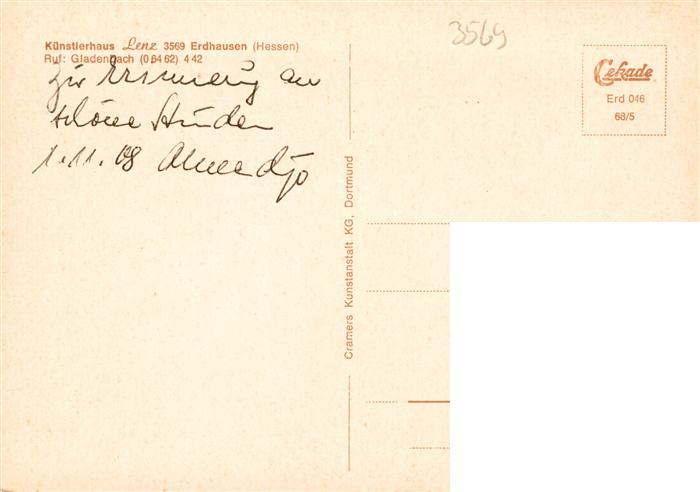 3569
Künstlerhaus Lenz 3569 Erdhausen (Hessen)
Ruf: Gladenbach (0 64 62) 4 42
Cekade
Erd 046
68/5
zur Erinnerung an
schöne Stunden
1.11.08
Cramers Kunstanstalt KG, Dortmund